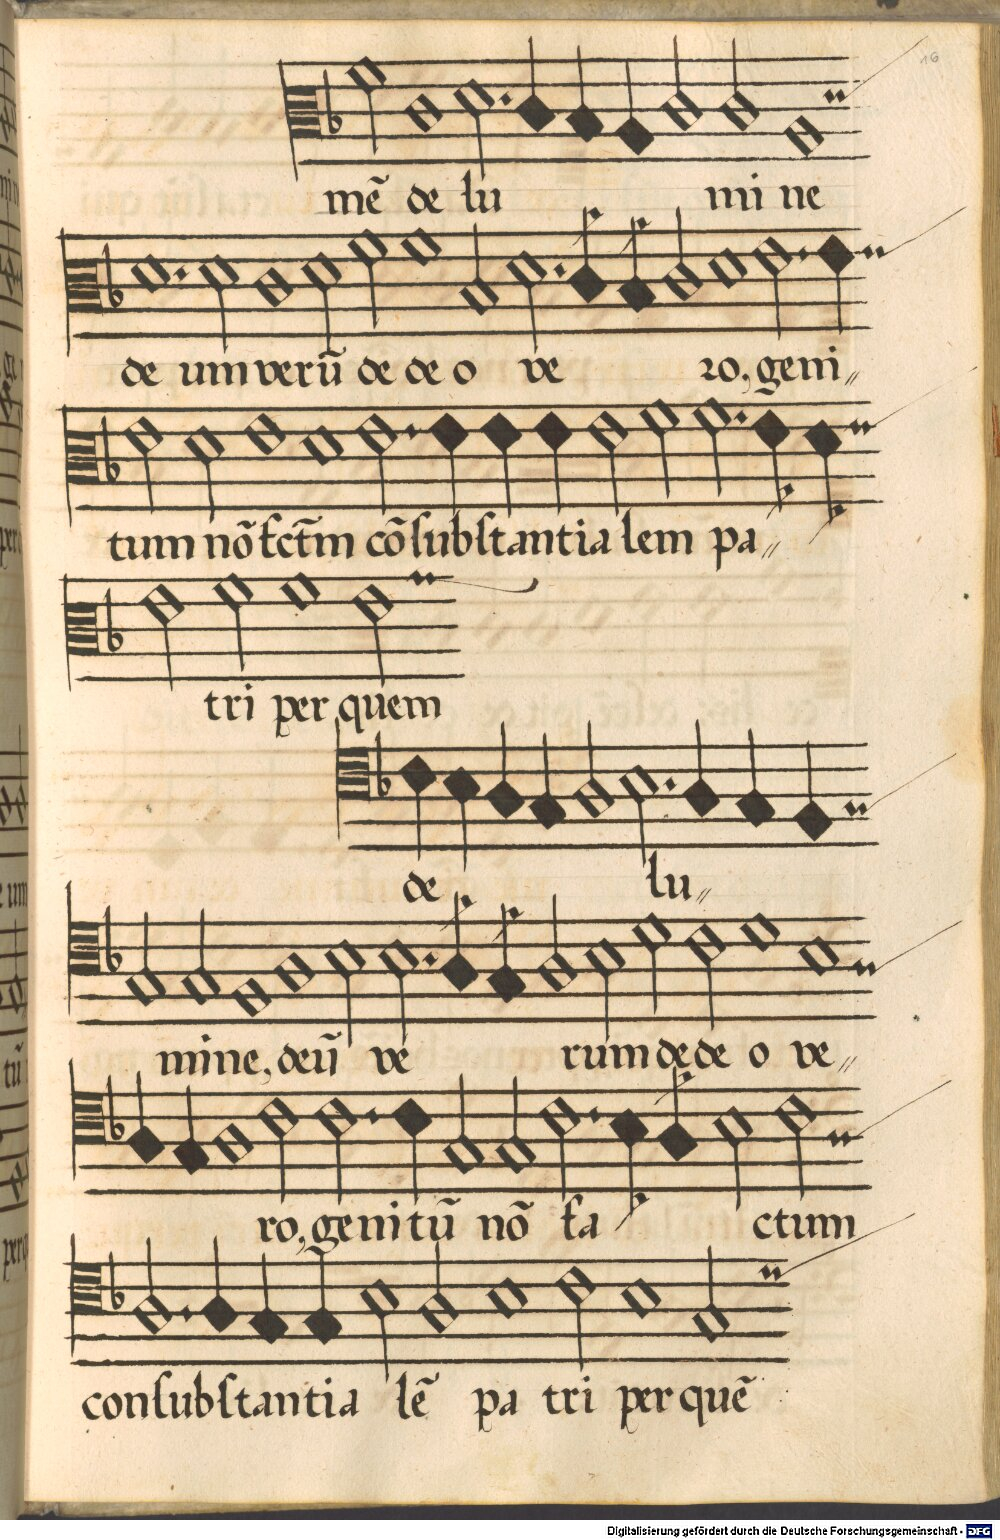 16
mē de lu mi ne
de um verū de de o ve ro, geni〃
tum nō fctm̄ cō substantia lem pa〃
tri per quem
de lu〃
mine, deū ve rum de de o ve〃
ro, genitū nō fa ctum
consubstantia lē pa tri per quē
Digitalisierung gefördert durch die Deutsche Forschungsgemeinschaft - DFG